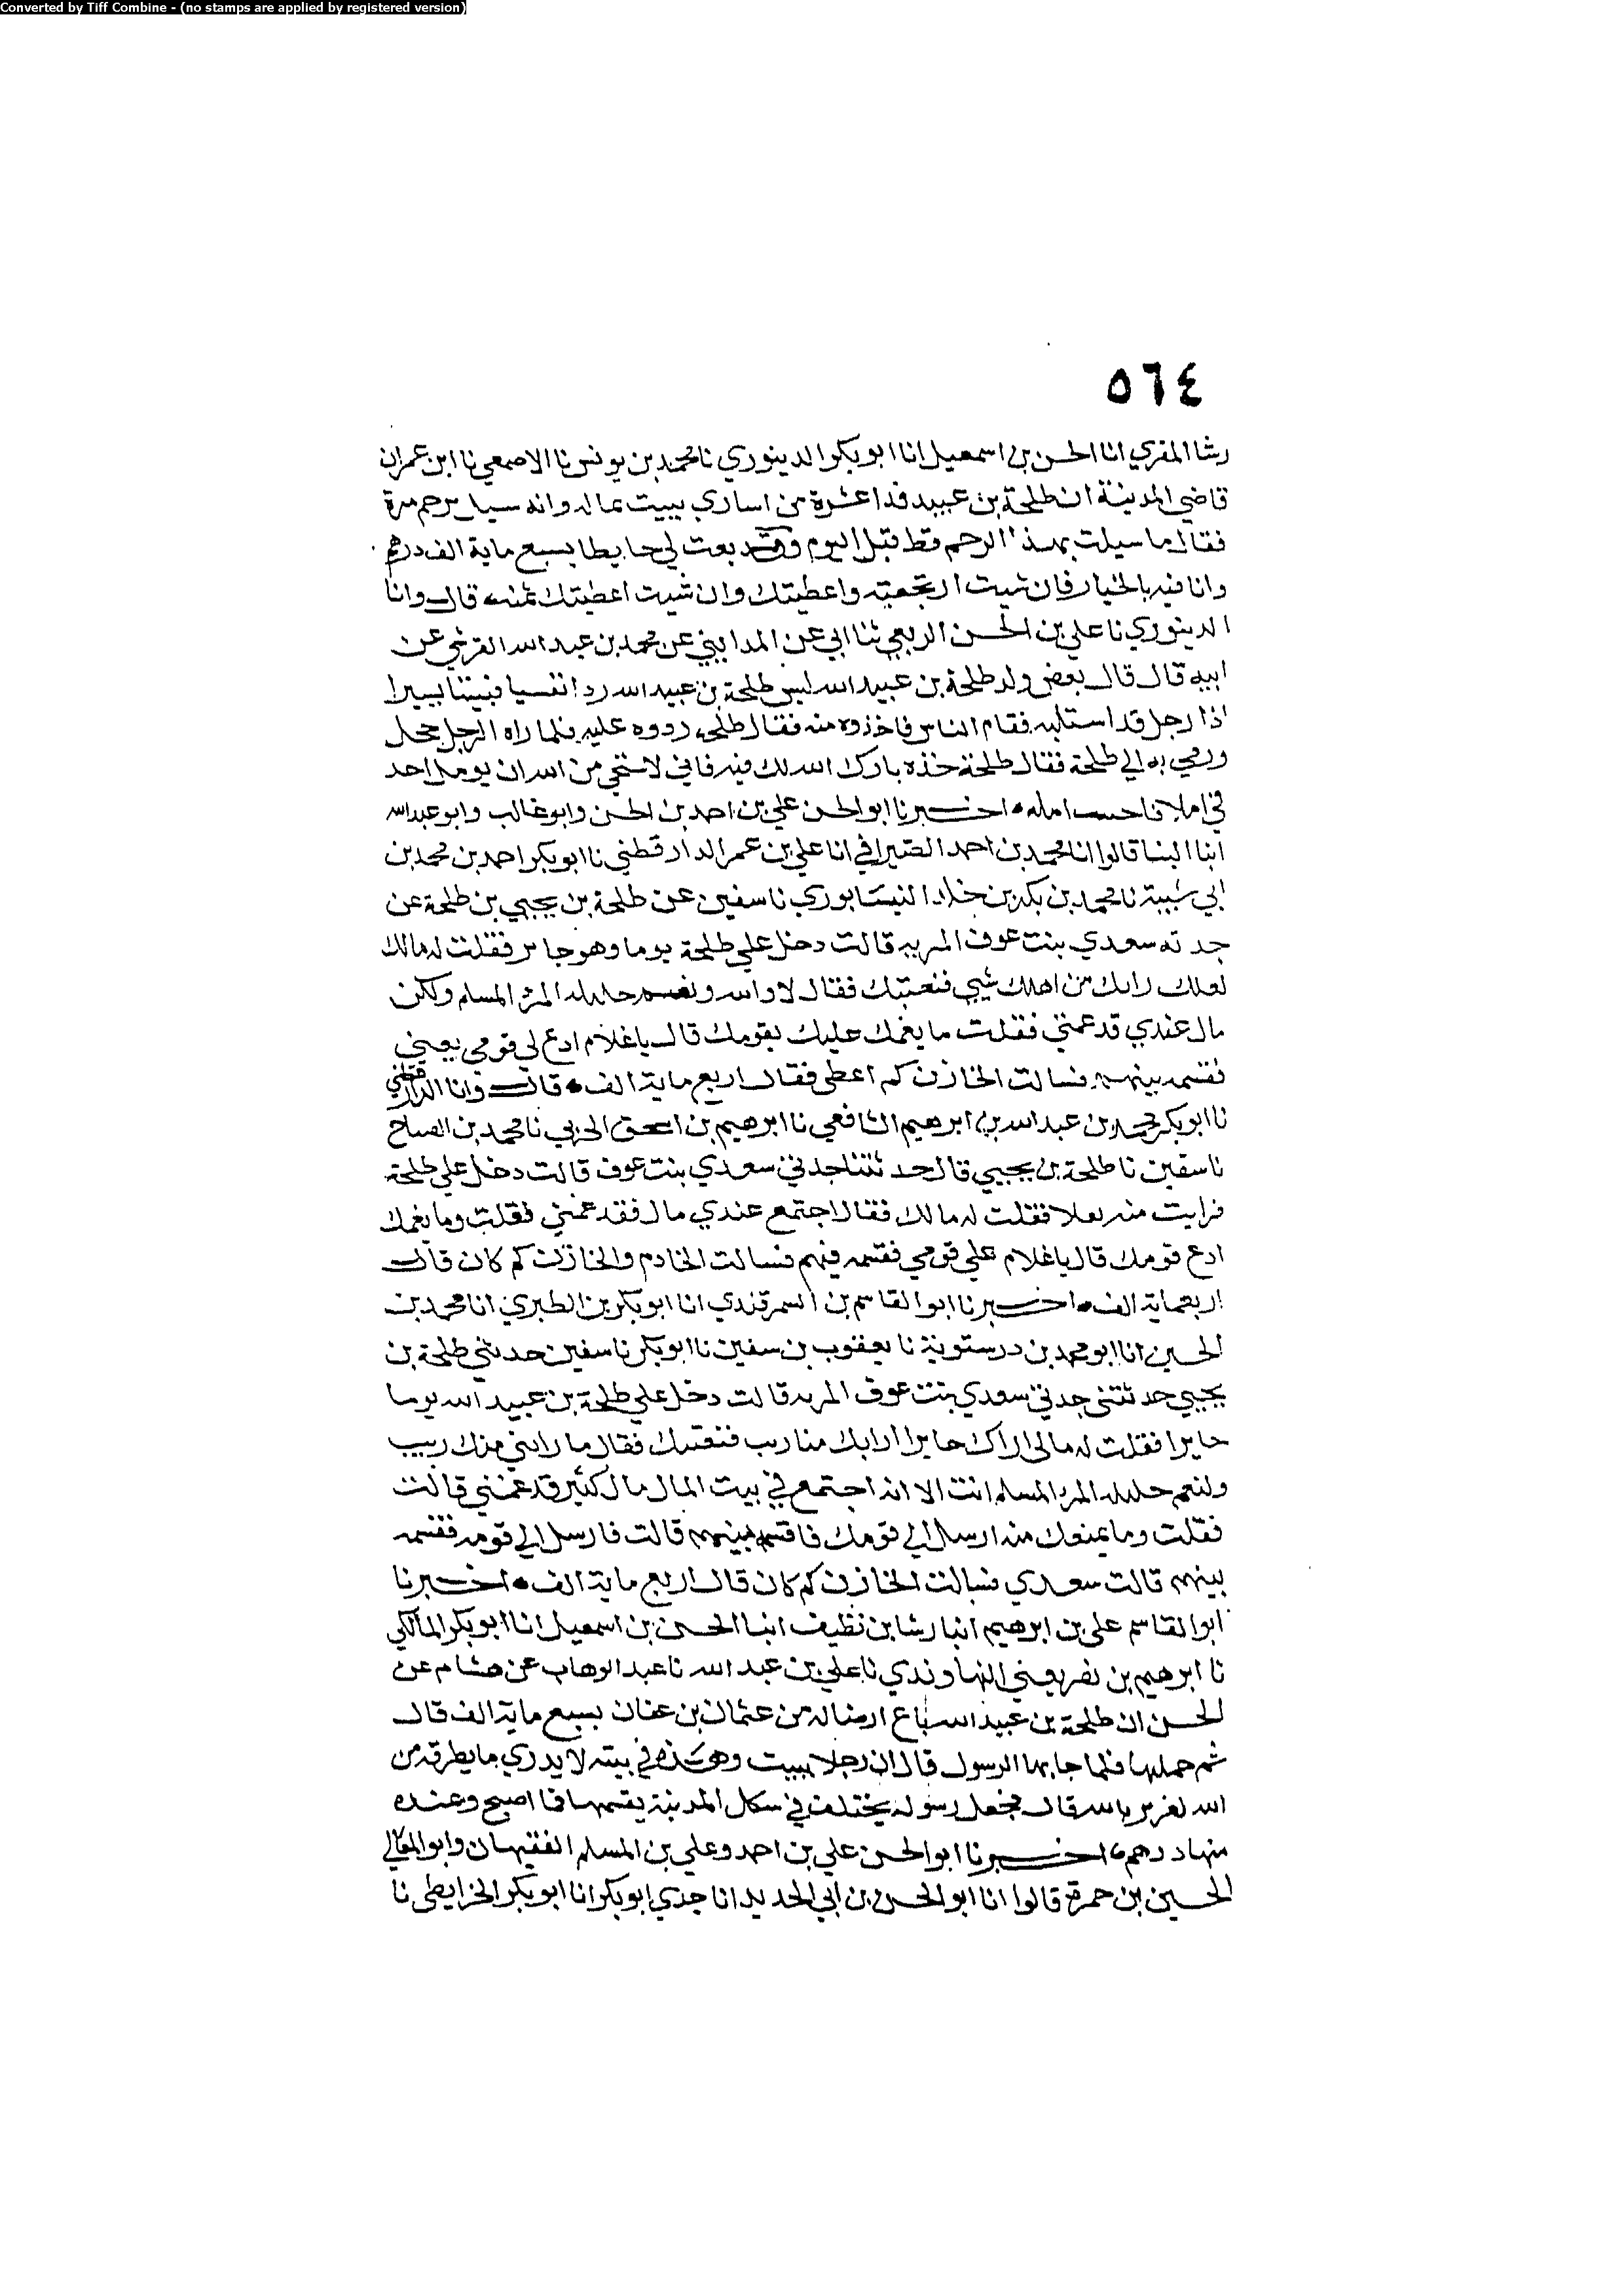 Converted by Tiff Combine - (no stamps are applied by registered version)
٥٦٤
رشا المقري انا الحسن بن اسمعيل انا ابو بكر الدينوري نا محمد بن يونس نا الاصمعي نا ابن عمران
قاضي المدينة ان طلحة بن عبيد فدا عشرة من اساري يبيت بماله وانه سيل برحم مرة
فقال ما سيلت بهذا الرحم قط قبل اليوم وقد بعت لي حايطا بسبع ماية الف درهم
وانا فيه بالخيار فان شيت ارتجعته واعطيتك وان شيت اعطيتك ثمنه قال وانا
الدينوري نا علي بن الحسن الربعي ثنا ابي عن المدايني عن محمد بن عبد الله القرشي عن
ابيه قال قال بعض ولد طلحة بن عبيد الله لبس طلحة بن عبيد الله ردا نفسيا فبينا يسيرا
اذا رجل قد استلبه فقام الناس فاخذوه منه فقال طلحه ردوه عليه فلما راه الرجل خجل
ورمي به الي طلحة فقال طلحة خذه بارك الله لك فيه فاني لاستحي من الله ان يومل احد
في املا فاحسب امله اخبرنا ابو الحسن علي بن احمد بن الحسن وابو غالب وابو عبد الله
ابنا البنا قالوا انا محمد بن احمد الصيرافي انا علي بن عمر الدارقطني نا ابو بكر احمد بن محمد بن
ابي شيبة نا محمد بن بكر بن خلاد النيسابوري نا سفين عن طلحة بن يحيي بن طلحة عن
جدته سعدي بنت عوف المريه قالت دخل علي طلحة يوما وهو خاثر فقلت له مالك
لعلك رابك من اهلك شيي فنعتبك فقال لا والله ونعم حليله المرء المسلم ولكن
مال عندي قد غمني فقلت ما يغمك عليك بقومك قال يا غلام ادع لي قومي يعني
فقسمه بينهم فسالت الخازن كم اعطى فقال اربع ماية الف قال وانا الدارقطني
نا ابو بكر محمد بن عبد الله بن ابرهيم الشافعي نا ابرهيم بن اسحق الحربي نا محمد بن الصباح
نا سفين نا طلحة بن يحيي قال حدثتنا جدتي سعدي بنت عوف قالت دخل علي طلحة
فرايت منه بعلا فقلت له مالك فقال اجتمع عندي مال فقد غمني فقلت وما يغمك
ادع قومك قال يا غلام علي قومي فقسمه فيهم فسالت الخادم والخازن كم كان قال
اربعماية الف اخبرنا ابو القاسم بن السمرقندي انا ابو بكر بن الطبري انا محمد بن
الحسين انا ابو محمد بن درستوية نا يعقوب بن سفين نا ابو بكر نا سفين حدثني طلحة بن
يحيي حدثتني جدتي سعدي بنت عوف المريه قالت دخل علي طلحة بن عبيد الله يوما
خايرا فقلت له مالى اراك خايرا ارابك منا ريب فنعتبك فقال ما رابني منك ريب
ولنعم حليله المرء المسلم انت الا انه اجتمع في بيت المال مال كثير قد غمني قالت
فقلت وما يمنعك منه ارسل الي قومك فاقسم بينهم قالت فارسل الي قومه فقسمه
بينهم قالت سعدي فسالت الخازن كم كان قال اربع ماية الف اخبرنا
ابو القاسم علي بن ابرهيم انبا رشا بن نظيف انبا الحسن بن اسمعيل انا ابو بكر المالكي
نا ابرهيم بن نصر يعني النهاوندي نا علي بن عبد الله نا عبد الوهاب عن هشام عن
الحسن ان طلحة بن عبيد الله باع ارضا له من عثمان بن عفان بسبع ماية الف قال
ثم حملها فلما جا بها الرسول قال ان رجلا يبيت وهذه في بيته لا يدري ما يطرقه من
الله لغرير بالله قال فجعل رسوله يختلف في سكل المدينة يقسمها فما اصبح وعنده
منها درهم اخبرنا ابو الحسن علي بن احمد وعلي بن المسلم الفقيهان وابو المعالي
الحسين بن حمزة قالوا انا ابو الحسن بن ابي الحديد انا جدي ابو بكر انا ابو بكر الخرايطي نا